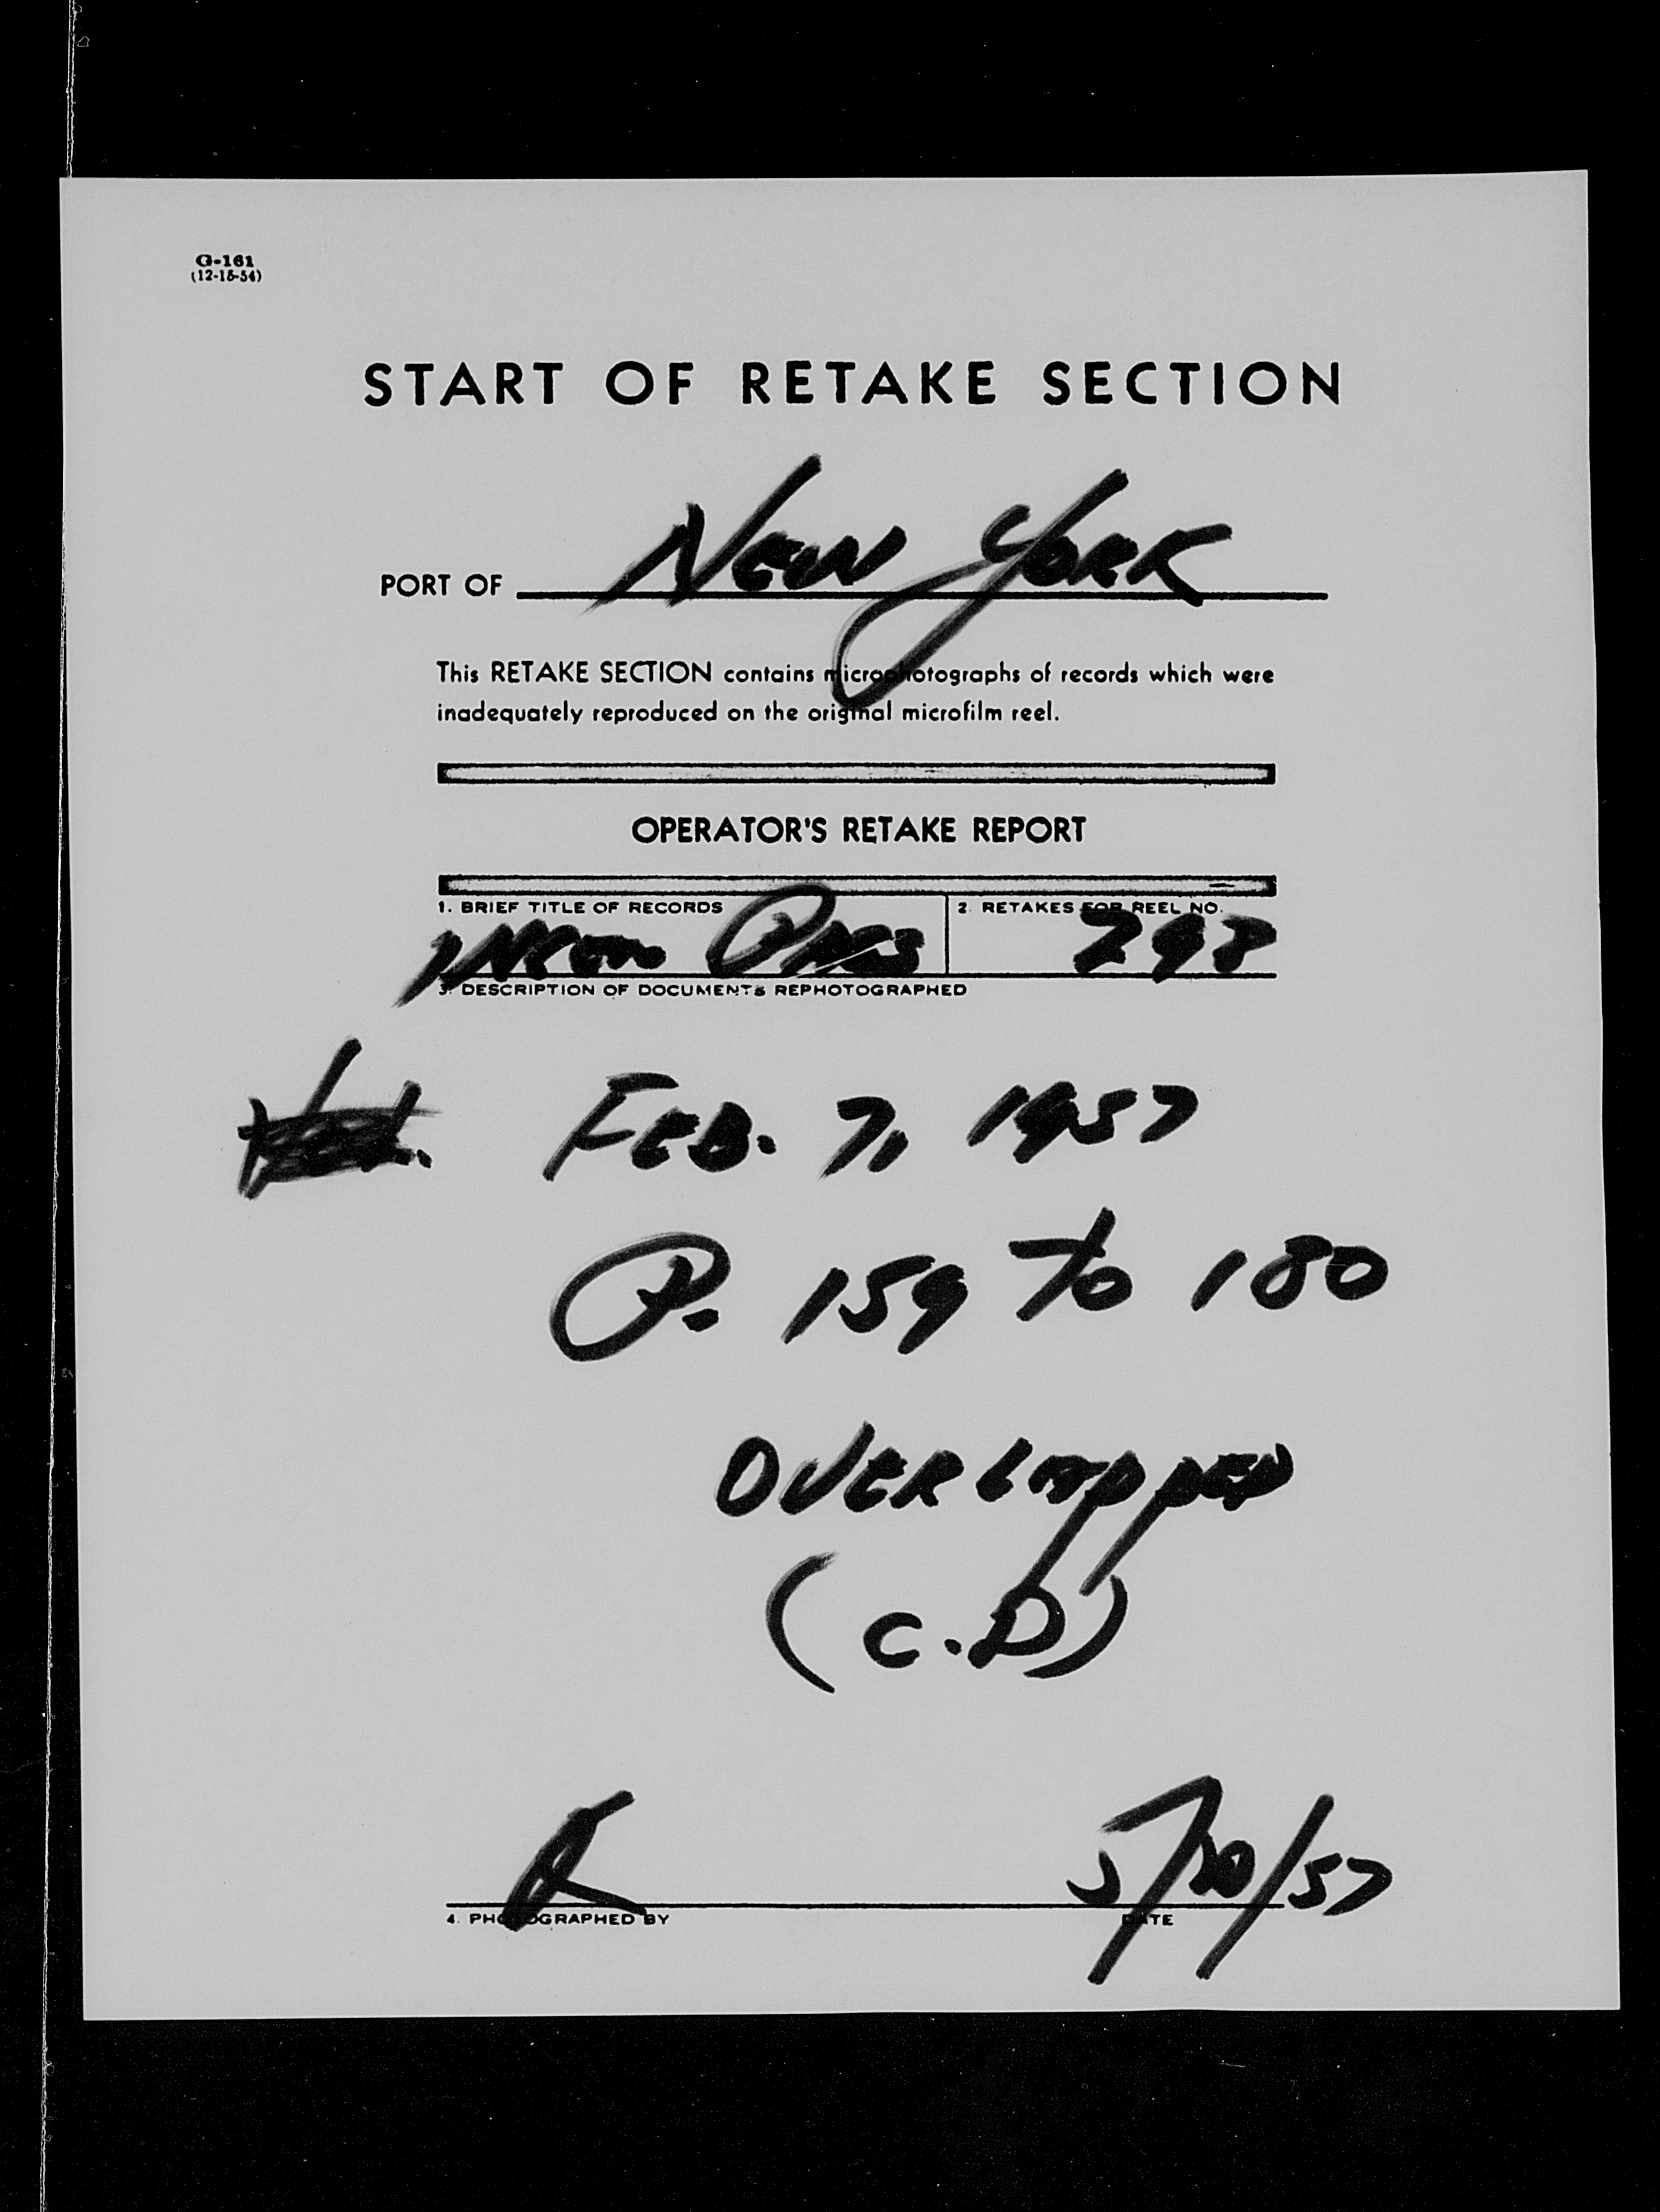 G-161
(12-15-54)
START OF RETAKE SECTION
PORT OF NEW YORK
This RETAKE SECTION contains microphotographs of records which were
inadequately reproduced on the original microfilm reel.
OPERATOR'S RETAKE REPORT
1. BRIEF TITLE OF RECORDS 2. RETAKES FOR REEL NO.
3. DESCRIPTION OF DOCUMENTS REPHOTOGRAPHED
FEB. 7, 1957
P. 159 to 180
OVERLAPPED
(C.D)
5/20/57
4. PHOTOGRAPHED BY DATE